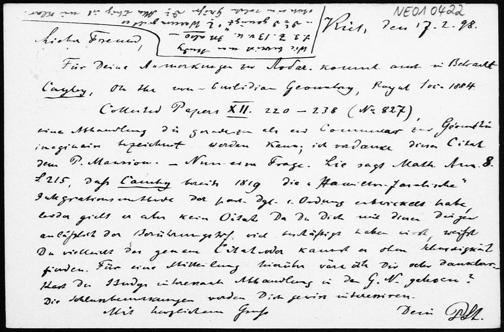 NE010422
Kiel, den 17. 2. 98.
Lieber Freund,
Für Deine Anmerkungen zu Lobac. kommt auch in Betracht
Cayley, On the non-Euclidian Geometry, Royal Soc. 1884
Collected Papers XII. 220 – 238 (No 827),
eine Abhandlung die geradezu als ein Commentar zur Géométrie
imaginaire bezeichnet werden kann; ich verdanke dieses Citat
dem P. Mansion. – Nun eine Frage. Lie sagt Math. Ann. 8.
S. 215, daß Cauchy bereits 1819 die „Hamilton-Jacobische"
Integrationsmethode der part. Dgl. 1. Ordnung entwickelt habe,
leider giebt er aber kein Citat. Da Du Dich mit diesen Dingen
anläßlich der Berührungstrf. viel beschäftigt haben wirst, weißt
Du vielleicht das genaue Citat oder kannst es ohne Schwierigkeit
finden. Für eine Mitteilung hierüber wäre ich Dir sehr dankbar.
Hast Du Study's Abhandlung in den G. N. gelesen?
Die Schlussbemerkungen werden Dich gewiss interessieren.
Mit herzlichem Gruss
Dein PSt.